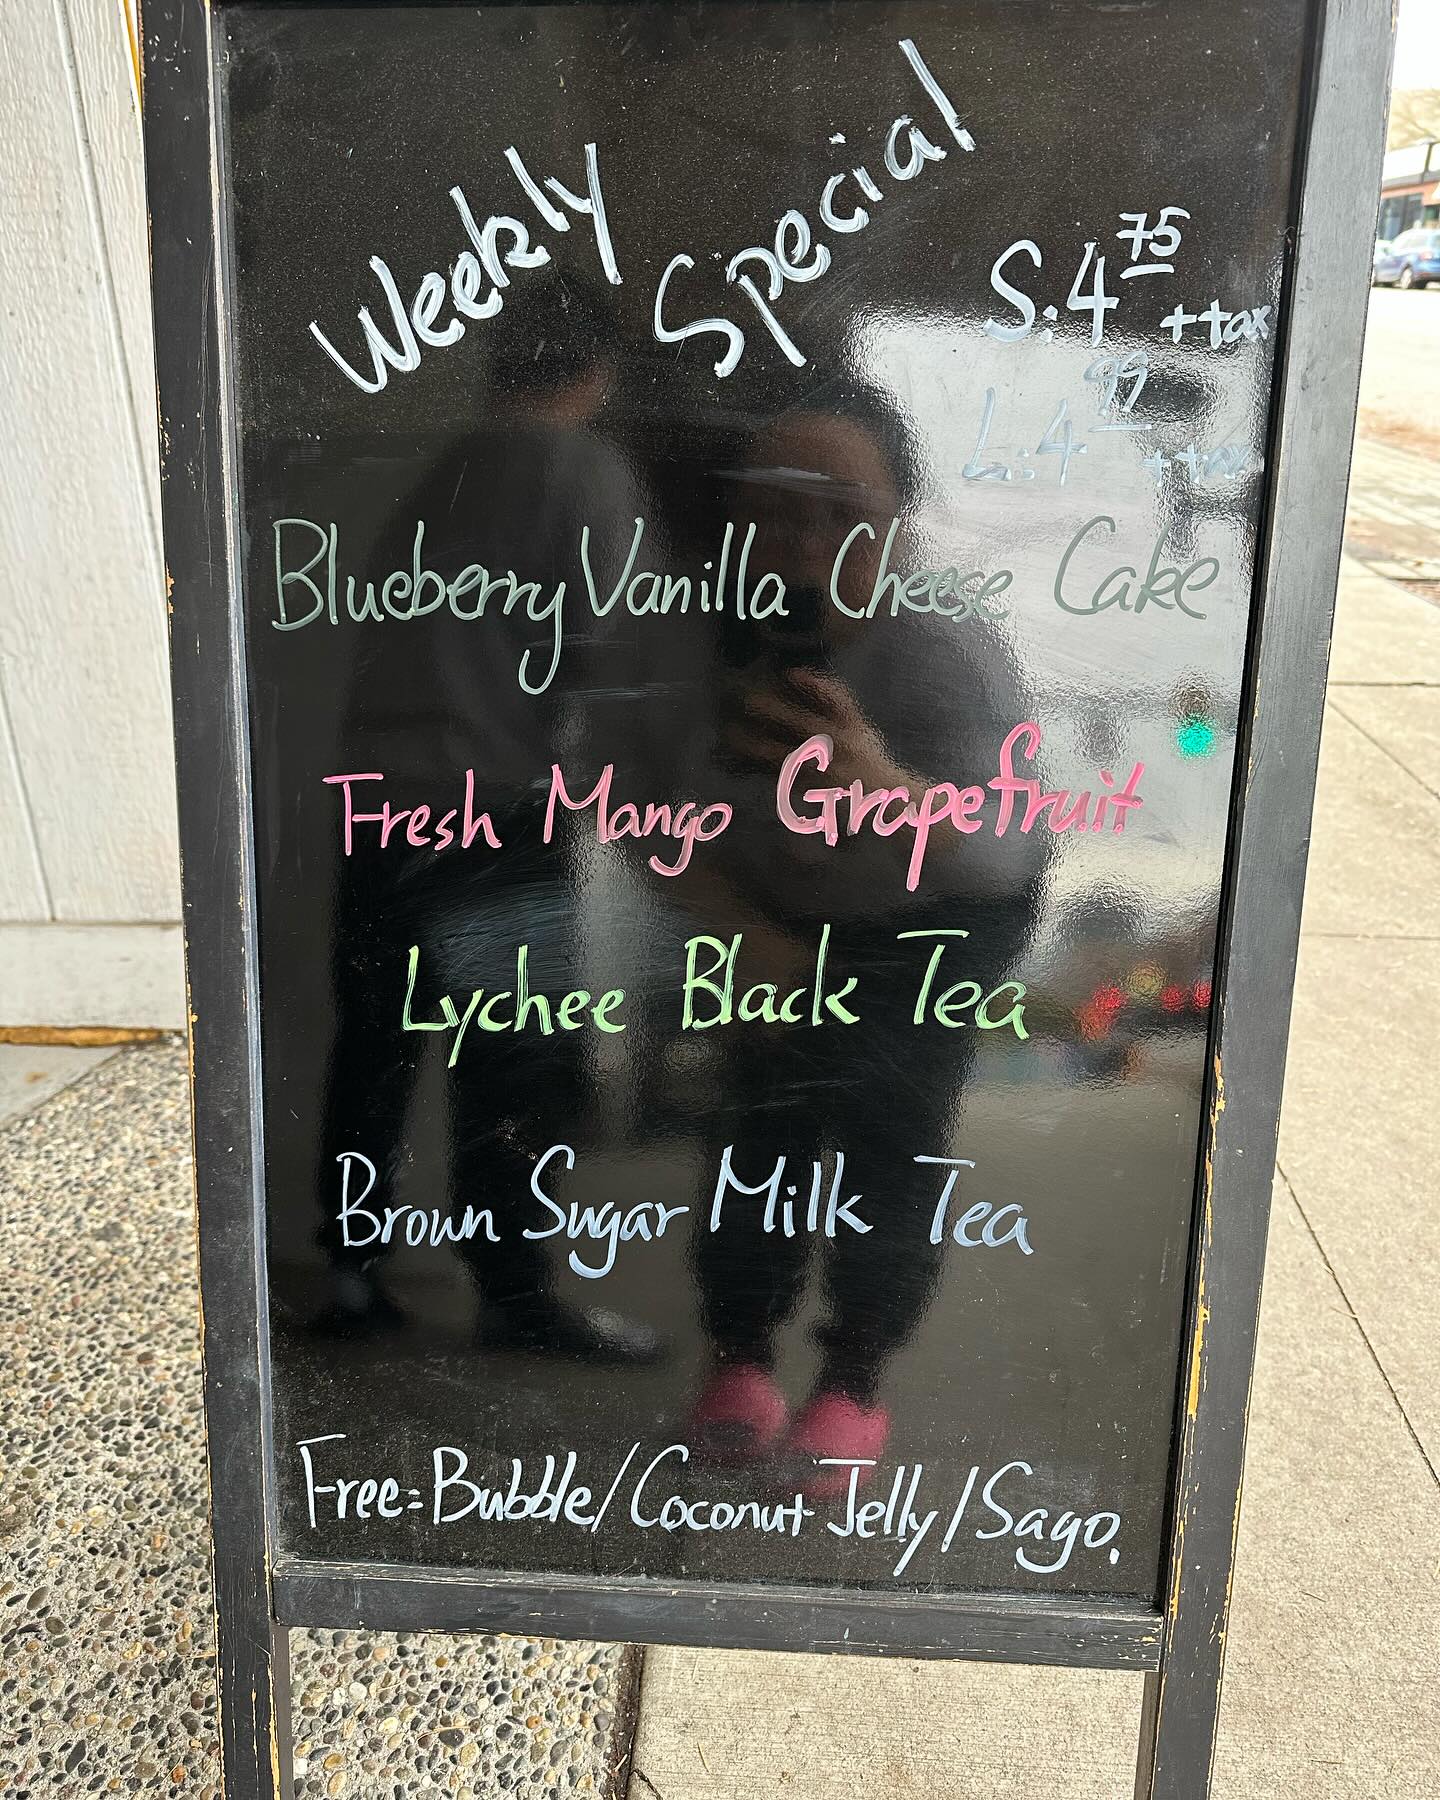 Weekly Special
S:4 75 + tax
L:4 99 + tax
Blueberry Vanilla Cheese Cake
Fresh Mango Grapefruit
Lychee Black Tea
Brown Sugar Milk Tea
Free=Bubble/Coconut Jelly/Sago.